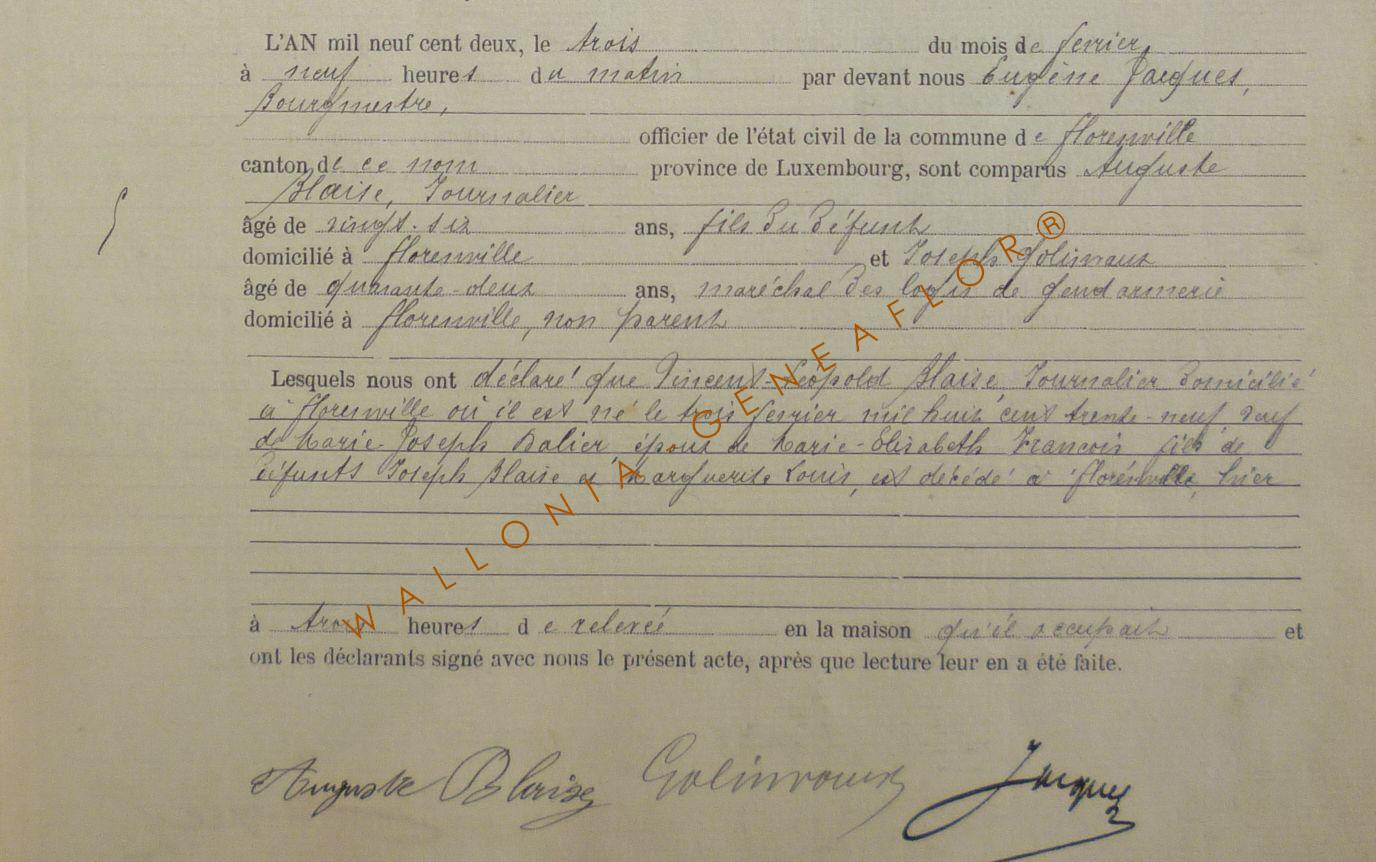 L'AN mil neuf cent deux, le trois du mois de fevrier
à neuf heures du matin par devant nous Eugène Jacques,
Bourgmestre,
officier de l'état civil de la commune de florenville
canton de ce nom province de Luxembourg, sont comparus Auguste
Blaise, Journalier
âgé de vingt-six ans, fils du défunt
domicilié à florenville et Joseph Golinvaux
âgé de quarante-deux ans, maréchal des logis de gendarmerie
domicilié à florenville, non parent
Lesquels nous ont déclaré que Vincent-Léopold Blaise Journalier domicilié
à florenville où il est né le trois fevrier mil huit cent trente-neuf veuf
de Marie-Joseph Balier époux de Marie-Elisabeth François fils de
défunts Joseph Blaise et Marguerite Louis, est décédé à florenville, hier
à trois heures de relevée en la maison qu'il occupait et
ont les déclarants signé avec nous le présent acte, après que lecture leur en a été faite.
Auguste Blaise Golinvaux Jacques
WALLONIA GENEAFLOR®